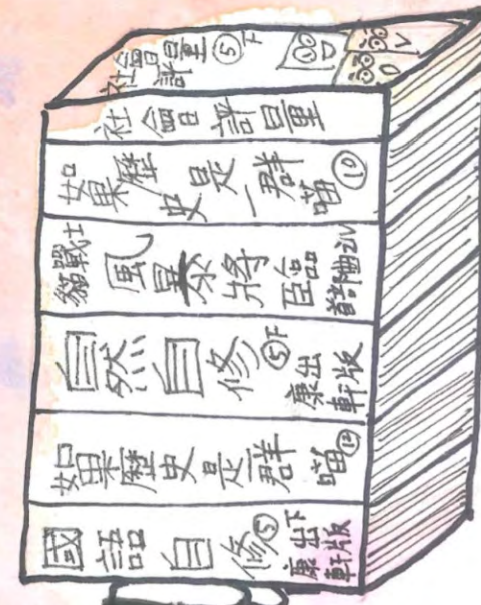 社會評量⑤下
100
社會評量
如果歷史是一群喵⑩
貓戰士 風暴將臨 首部曲之IV
自然自修⑤下 康軒出版
如果歷史是一群喵⑫
國語自修⑤下 康軒出版